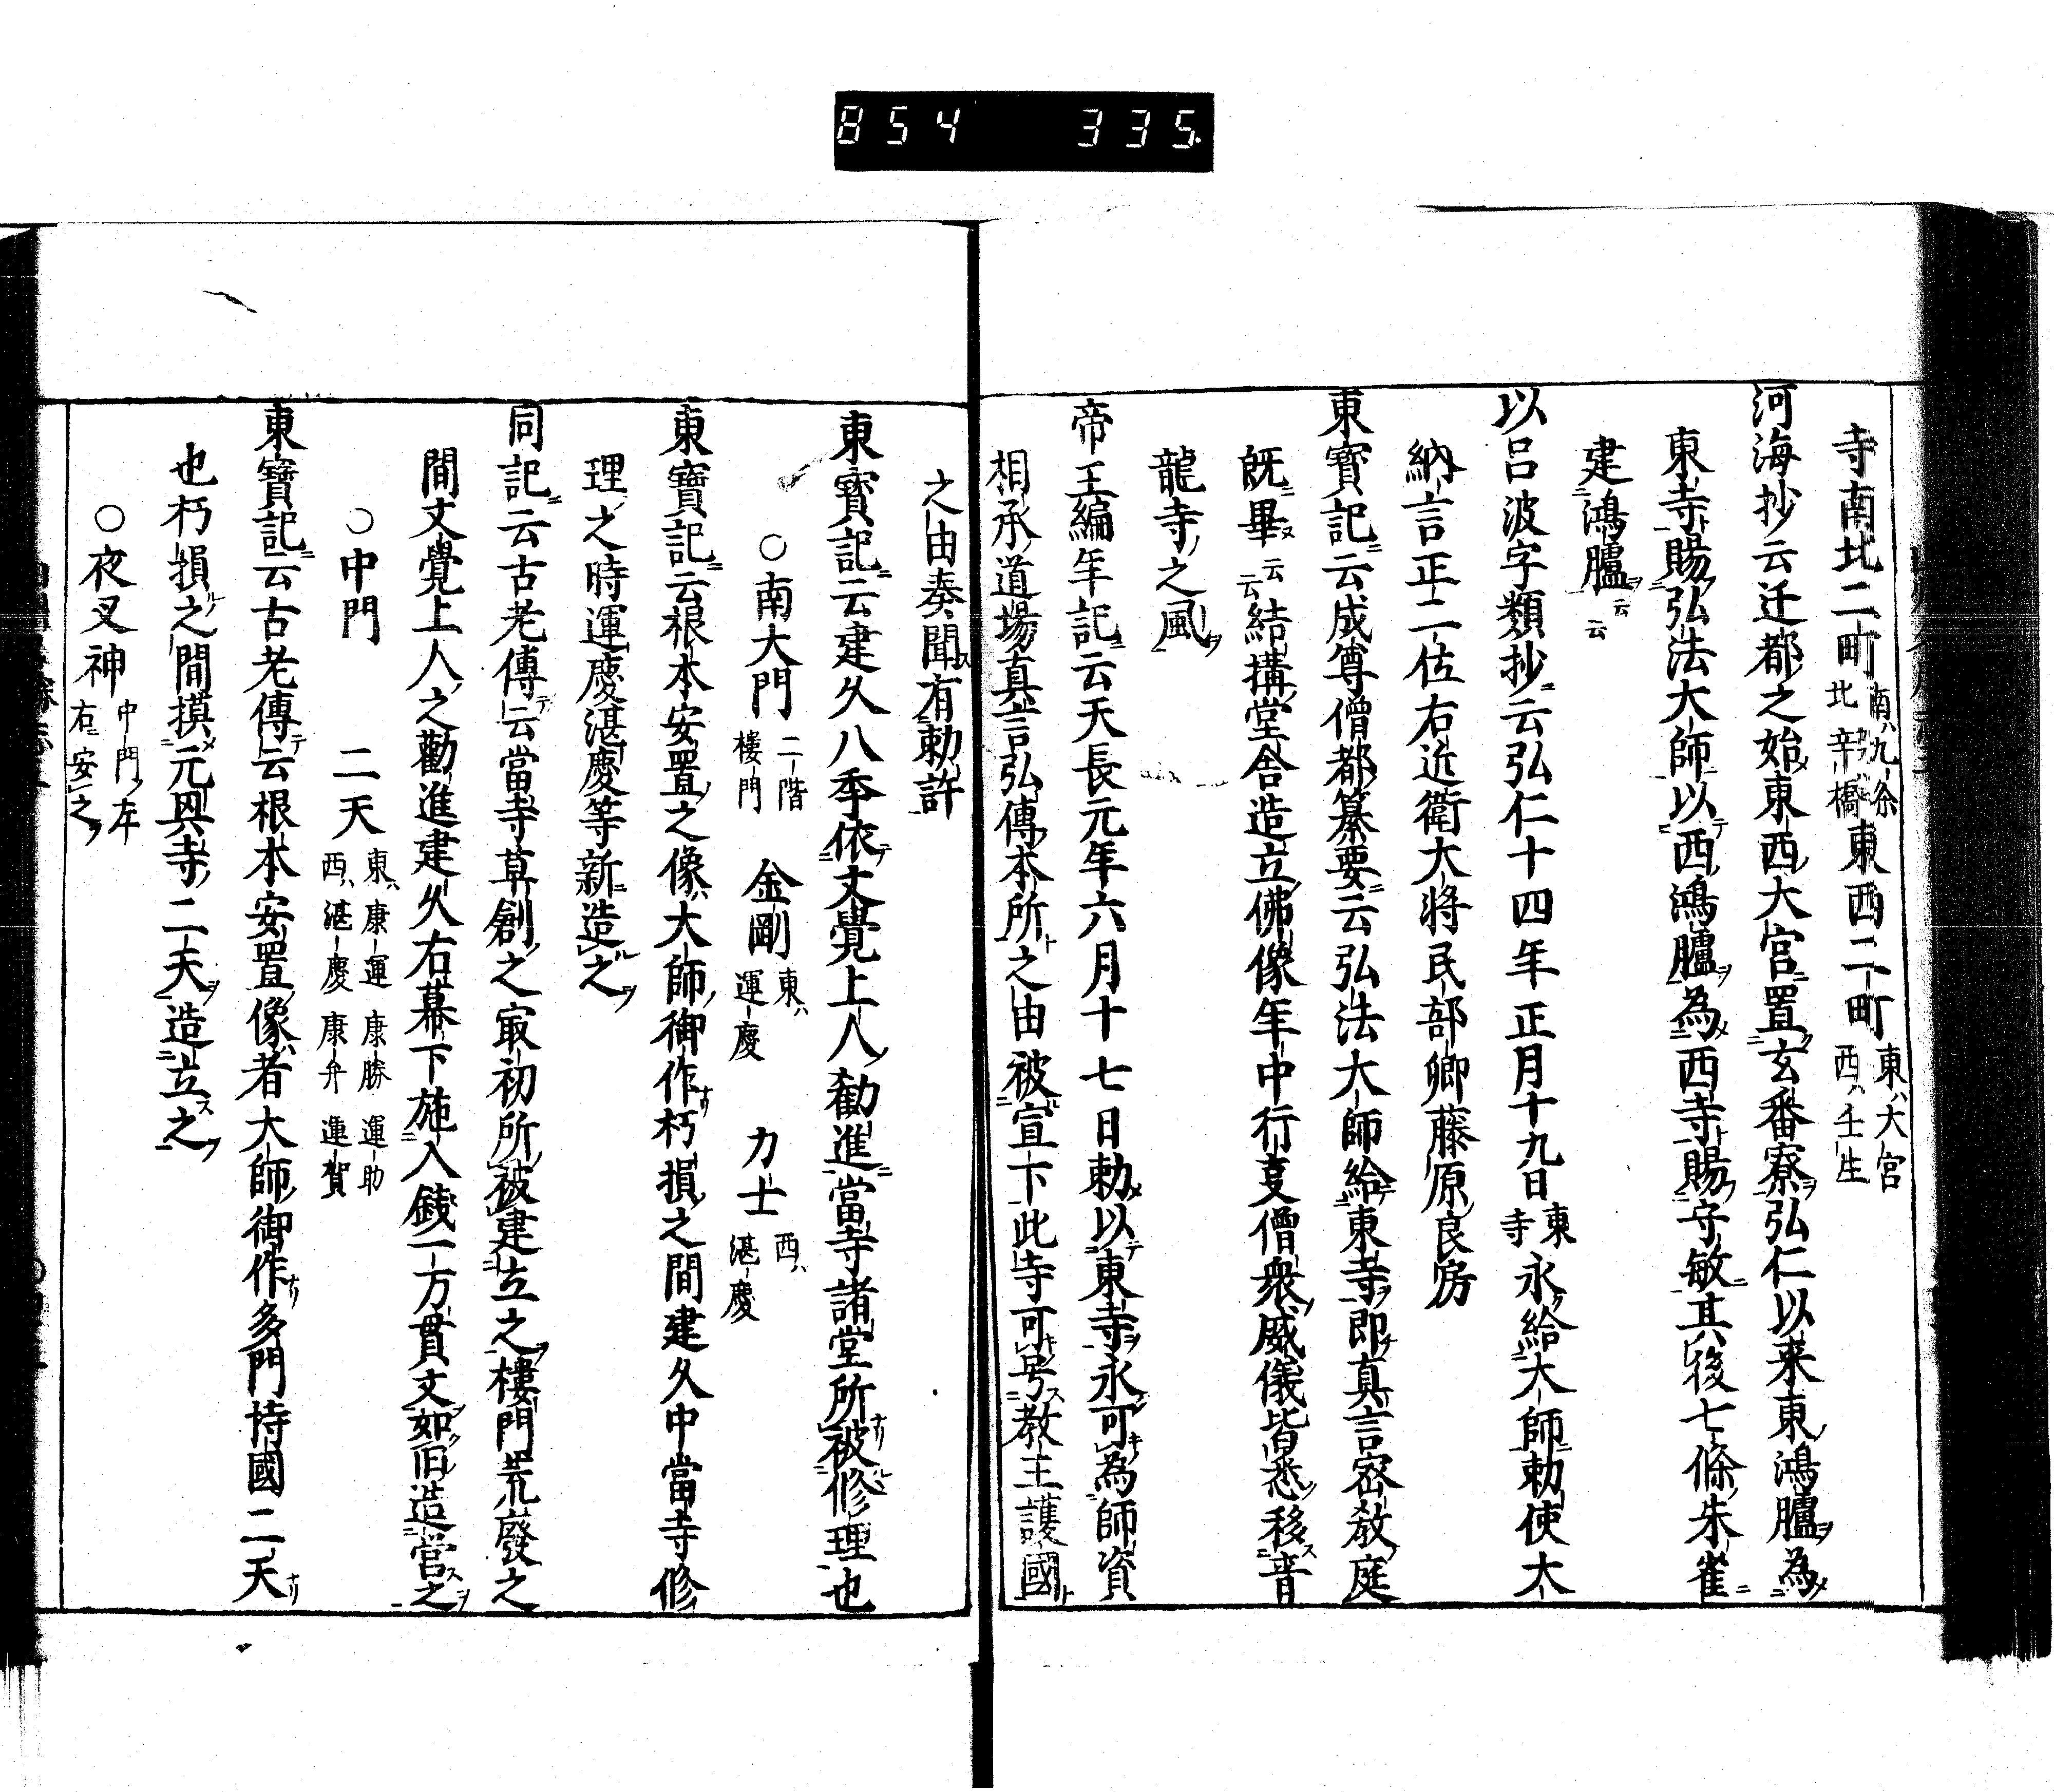 854 335.
寺南北二町南ハ九条北辛橋東西二町東ハ大宮西ハ壬生
河海抄云迁都之始東西大宮置玄番寮弘仁以来東鴻臚為
東寺賜弘法大師以西鴻臚為西寺賜守敏其後七條朱雀
建鴻臚云云
以呂波字類抄云弘仁十四年正月十九日東寺永給大師勅使大
納言正二位右近衛大将民部卿藤原良房
東寳記云成尊僧都纂要云弘法大師給東寺即真言密教庭
既畢云云結搆堂舎造立佛像年中行叓僧衆威儀皆悉移青
龍寺之風
帝王編年記云天長元年六月十七日勅以東寺永可為師資
相承道場真言弘傳本所之由被宣下此寺可号教王護國
之由奏聞有勅許
東寳記云建久八季依文覺上人勧進當寺諸堂所被修理也
○南大門二階樓門 金剛東ハ運慶 力士西ハ湛慶
東寳記云根本安置之像大師御作朽損之間建久中當寺修
理之時運慶湛慶等新造之
同記云古老傳云當寺草創之最初所被建立之樓門荒廢之
間文覺上人之勸進建久右幕下施入錢一万貫文如旧造営之
○中門 二天東ハ康運 康勝 運助西ハ湛慶 康弁 運賀
東寳記云古老傳云根本安置像者大師御作多門持國二天
也朽損之間摸元興寺二天造立之
○夜叉神中門左右安之